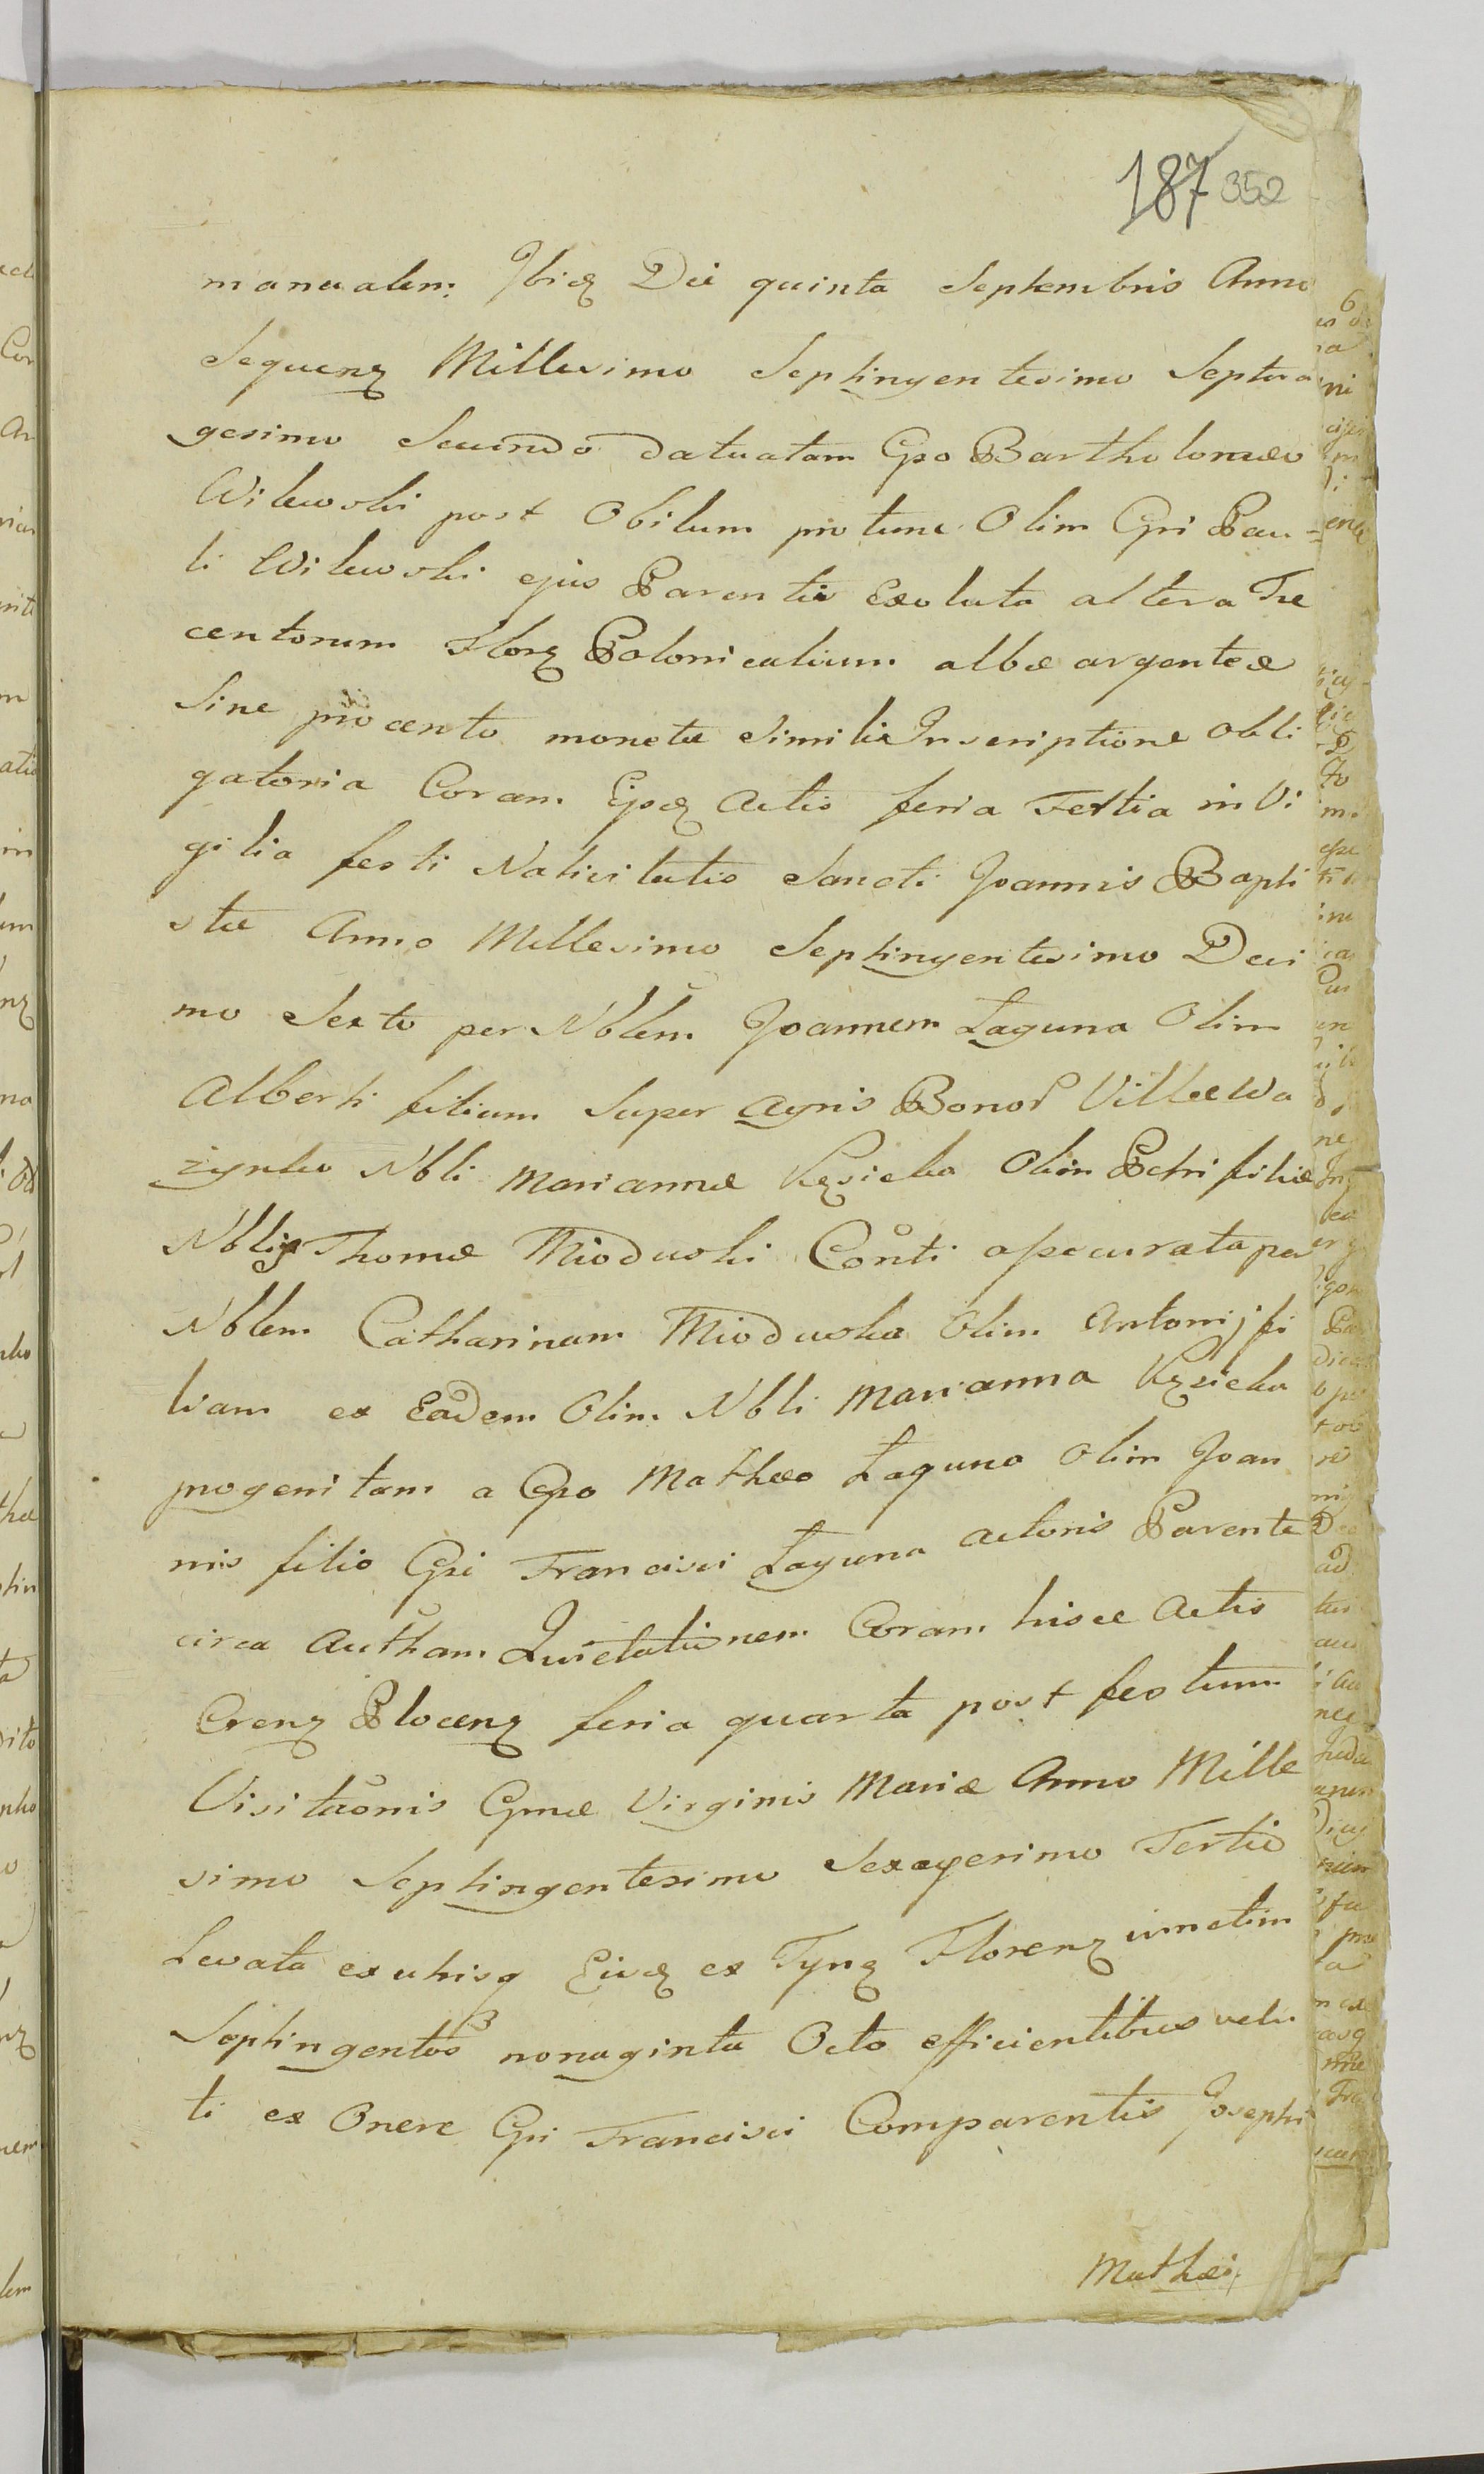 187 352
manualem. Ibidꝫ Die quinta Septembris Anno
Sequenꝫ Millesimo Septingentesimo Septua
gesimo Secundo datuatam Gso Bartholomæo
Wilewski post Obitum pro tunc Olim Gsi Pau-
li Wilewski ejus Parentis Exoluta altera Tre
centorum Florꝫ Polonicalium albæ argenteæ
Sine procento monetæ Simili Inscriptione obli
gatoria Coram Eisdꝫ Actis feria Tertia in Vi
gilia festi Nativitatis Sancti Joannis Bapti
stæ Anno Millesimo Septingentesimo Deci
mo Sexto per Nblem Joannem Laguna Olim
Alberti filium Super Agris Bonor Villæ Wa
zynko Nbli Mariannæ Kęsicka Olim Petri filiæ
Nblis Thomæ Mioduski Conti assecurata per
Nblem Catharinam Mioduska Olim Antonij fi
liam ex Eadem Olim Nbli Marianna Kęsicka
progenitam a Gso Mathæo Laguna Olim Joan
nis filio Gsi Francisci Laguna actoris Parente
circa Autham Quietationem Coram hisce Actis
Crenꝫ Plocenꝫ feria quarta post festum
Visitaonis Gmæ Virginis Mariæ Anno Mille
simo Septingentesimo Sexagesimo Tertio
Levata ex uhisq Eisdꝫ ex Tynꝫ Florenꝫ unctim
Septingentos nonaginta Octo efficientibus velu
ti ex Onere Gsi Francisci Comparentis Josephi
Mathæi